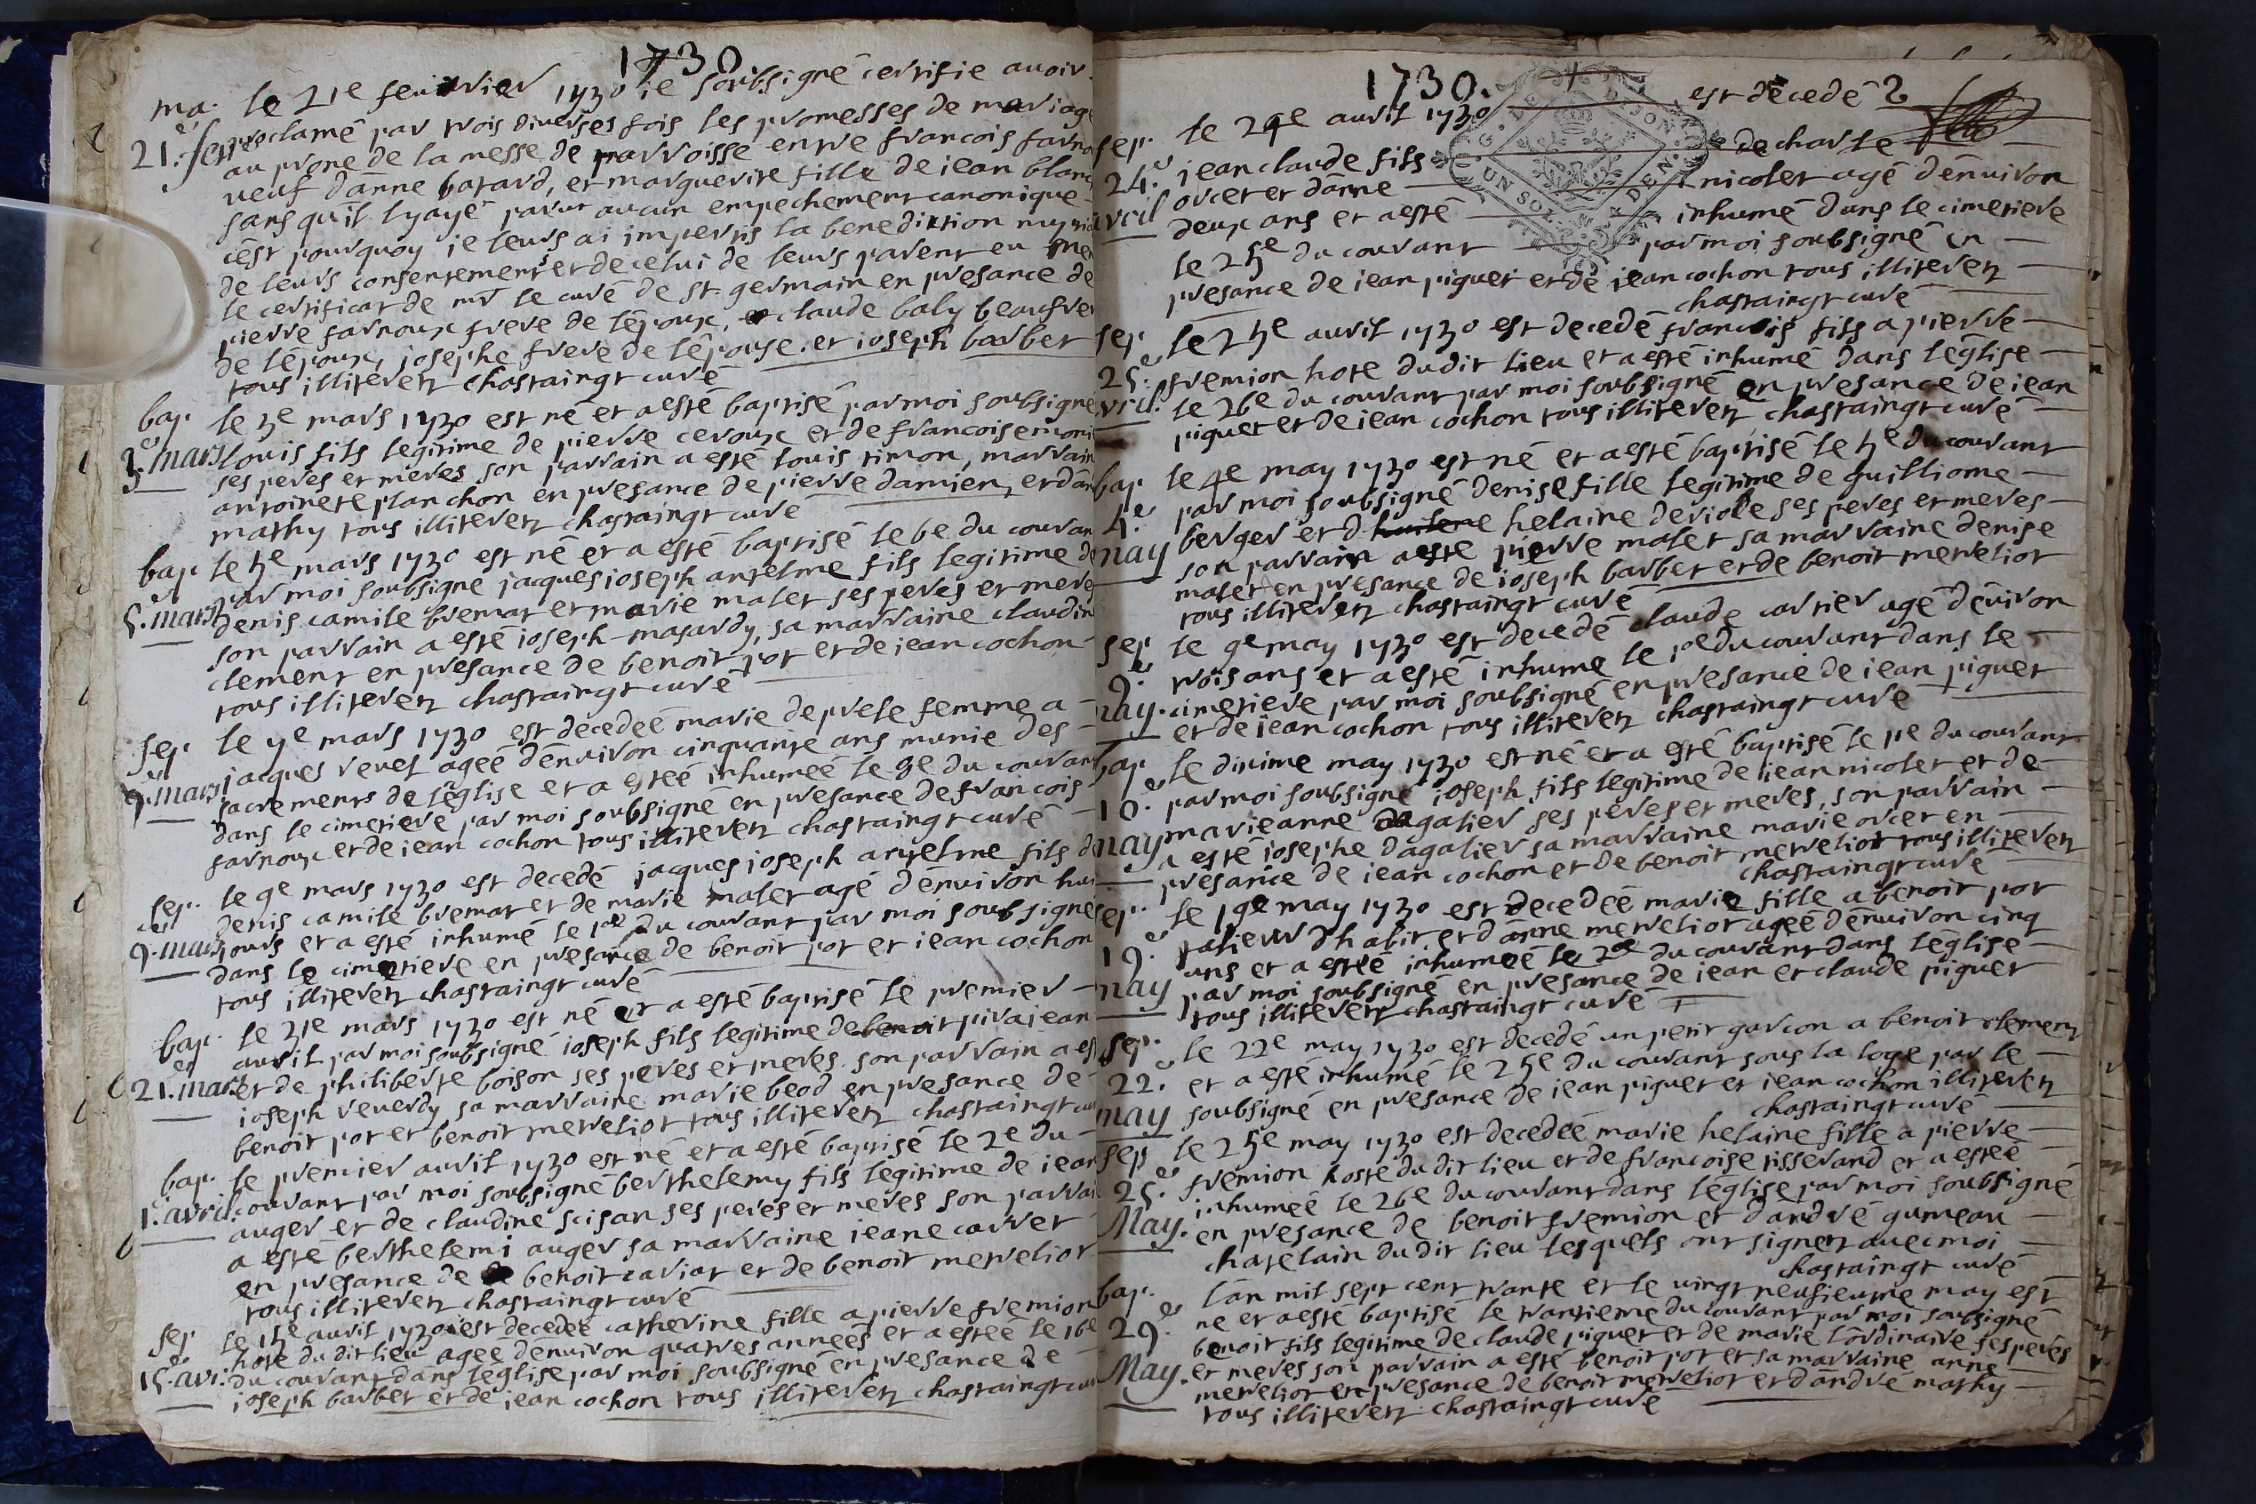 1730.
ma. le 21e feuvrier 1730 ie soubsigné certifie avoir
21.e fepvr proclamé par trois diverses fois les promesses de mariage
au prone de la messe de parroisse entre francois farno
veuf danne batard, et marguerite fille de iean blanc
sans quil lyayé parut aucun empechement canonique
cest pourquoy ie leurs ai impertis la benediction nuptia
de leurs consentement et de celui de leurs parent eu
le certificat de mr le curé de st germain en presance de
pierre farnoux frere de lépoux, et claude baly beaufrer
de lépoux, josephe frere de lépouse. et ioseph barbet
tous illiterez chastaingt curé
bap. le 3e mars 1730 est né et a esté baptisé par moi soubsigné
3.e mars louis fils legitime de pierre ceroux et de francoise
ses peres et meres son parrain a esté louis timon, marrain
antoinete planchon en presance de pierre damien, et dan
mathy tous illiterez chastaingt curé
bap le 5e mars 1730 est né et a esté baptisé le 6e du couran
5.e mars par moi soubsigné jacques ioseph antelme fils legitime de
denis camile bremat et marie malet ses peres et mere
son parrain a esté ioseph masardy, sa marraine claudin
clement en presance de benoit pot et de jean cochon
tous illiterez chastaingt curé
sep. le 9e mars 1730 est decedeé marie deprele femme a
9.e mars jacques veuet ageé denuiron cinquante ans munie des
sacrements de léglise et a esteé inhumeé le 9e du couran
dans le cimetiere par moi soubsigné en presance de francois
farnoux et de iean cochon tous illiterez chastaingt curé
sep. le 9e mars 1730 est decedé jacques ioseph antelme fils de
9.e mars denis camile bremat et de marie malet agé denuiron hui
jours et a esté inhumé le 10e du courant par moi soubsigné
dans le cimetiere en presance de benoit pot et iean cochon
tous illiterez chastaingt curé
bap. le 31e mars 1730 est né et a esté baptisé le premier
avril par moi soubsigné ioseph fils legitime de benoit pira jean
21.e mars et de philiberte boison ses peres et meres son parrain a es
ioseph reuerdy sa marraine marie beod en presance de
benoit pot et benoit merveliot tous illiterez chastaingt cur
bap. le premier auvil 1730 est né et a esté baptisé le 2e du
1.e avril. courant par moi soubsigné berthelemy fils legitime de iean
auger et de claudine scisan ses peres et meres son parrai
a esté berthelemi auger sa marraine ieane carret
en presance de benoit cariat et de benoit merveliot
tous illiterez chastaingt curé
sep le 15e avril 1730 est decedeé catherine fille a pierre fremion
15.e avr. hote du dit lieu ageé denuiron quatres anneés et a esteé le 16e
du courant dans léglise par moi soubsigné en presance de
ioseph barbet et de iean cochon tous illiterez chastaingt cur
1730.
sep. le 24e auvil 1730 est decedé
24.e jean claude fils de charle
avril orcet et danne nicolet agé denuiron
deux ans et a esté inhumé dans le cimetiere
le 25e du courant par moi soubsigné en
presance de iean piguet et de iean cochon tous illiterez
chastaingt curé
sep le 25e auvil 1730 est decedé francois fils a pierre
25.e fremion hote dudit lieu et a esté inhumé dans léglise
vril. le 26e du courant par moi soubsigné en presance de iean
piguet et de iean cochon tous illiterez chastaingt curé
bap le 4e may 1730 est né et a esté baptisé le 5e du courant
4.e par moi soubsigné denise fille legitime de guilliome
may berger et d helaine deriole ses peres et meres
son parrain a esté pierre malet sa marraine denise
malet en presance de ioseph barbet et de benoit merveliot
tous illiterez chastaingt curé
sep le 9e may 1730 est decedé claude cartier agé denuiron
9.e trois ans et a esté inhumé le 10e du courant dans le
may. cimetiere par moi soubsigné en presance de iean piguet
et de iean cochon tous illiterez chastaingt curé
bap le dixime may 1730 est né et a esté baptisé le 11e du courant
10.e par moi soubsigné ioseph fils legitime de iean nicolet et de
may marieanne dagalier ses peres et meres, son parrain
a esté iosephe dagalier sa marraine marie orcet en
presance de iean cochon et de benoit merveliot tous illiterez
chastaingt curé
sep. le 19e may 1730 est decedeé marie fille a benoit pot
19.e talieur dhabit et danne merveliot ageé denuiron cinq
ans et a esteé inhumeé le 20e du courant dans léglise
may par moi soubsigné en presance de iean et claude piguet
tous illiterez chastaingt curé
sep. le 22e may 1730 est decedé un petit garcon a benoit clement
22.e et a esté inhumé le 25e du courant sous la loge par le
may soubsigné en presance de iean piguet et iean cochon illiterez
chastaingt curé
sep le 25e may 1730 est decedeé marie helaine fille a pierre
25.e fremion hoste du dit lieu et de francoise tisserand et a esteé
inhumeé le 26e du courant dans léglise par moi soubsigné
May. en presance de benoit fremion et dandré gumeau
chatelain du dit lieu lesquels ont signez avec moi
chastaingt curé
bap. lan mil sept cent trante et le vingt neufieume may est
29.e ne et a esté baptisé le trantieme du courant par moi soubsigné
benoit fils legitime de claude piguet et de marie lordinaire ses peres
May. et meres son parrain a esté benoit pot et sa marraine anne
merveliot en presance de benoit merveliot et dandré mathy
tous illiterez chastaingt curé